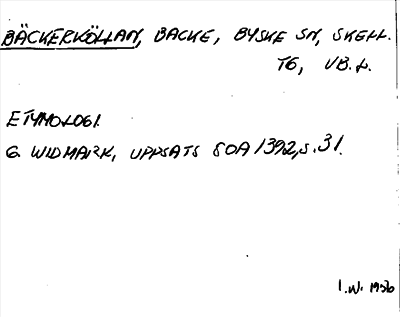 BÄCKERKÖLLAN, BACKE, BYSKE SN, SKELL.
TG, VB.L.
ETYMOLOGI.
G. WIDMARK, UPPSATS SOA 1392, S. 31.
I.W. 1956